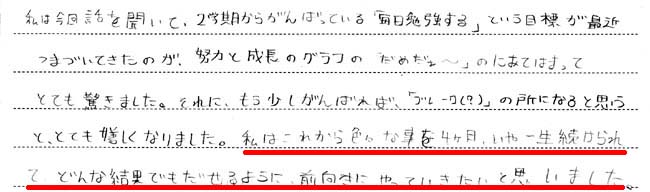 私は今回話を聞いて、2学期からがんばっている「毎日勉強する」という目標が最近
つまづいてきたのが、努力と成長のグラフの「だめだぁ～」のにあてはまって
とても驚きました。それに、もう少しがんばれば、「ブレーク(?)」の所になると思う
と、とても嬉しくなりました。私はこれから色々な事を4ヶ月、いや一生続けられ
て、どんな結果でもだせるように、前向きにやっていきたいと思いました。